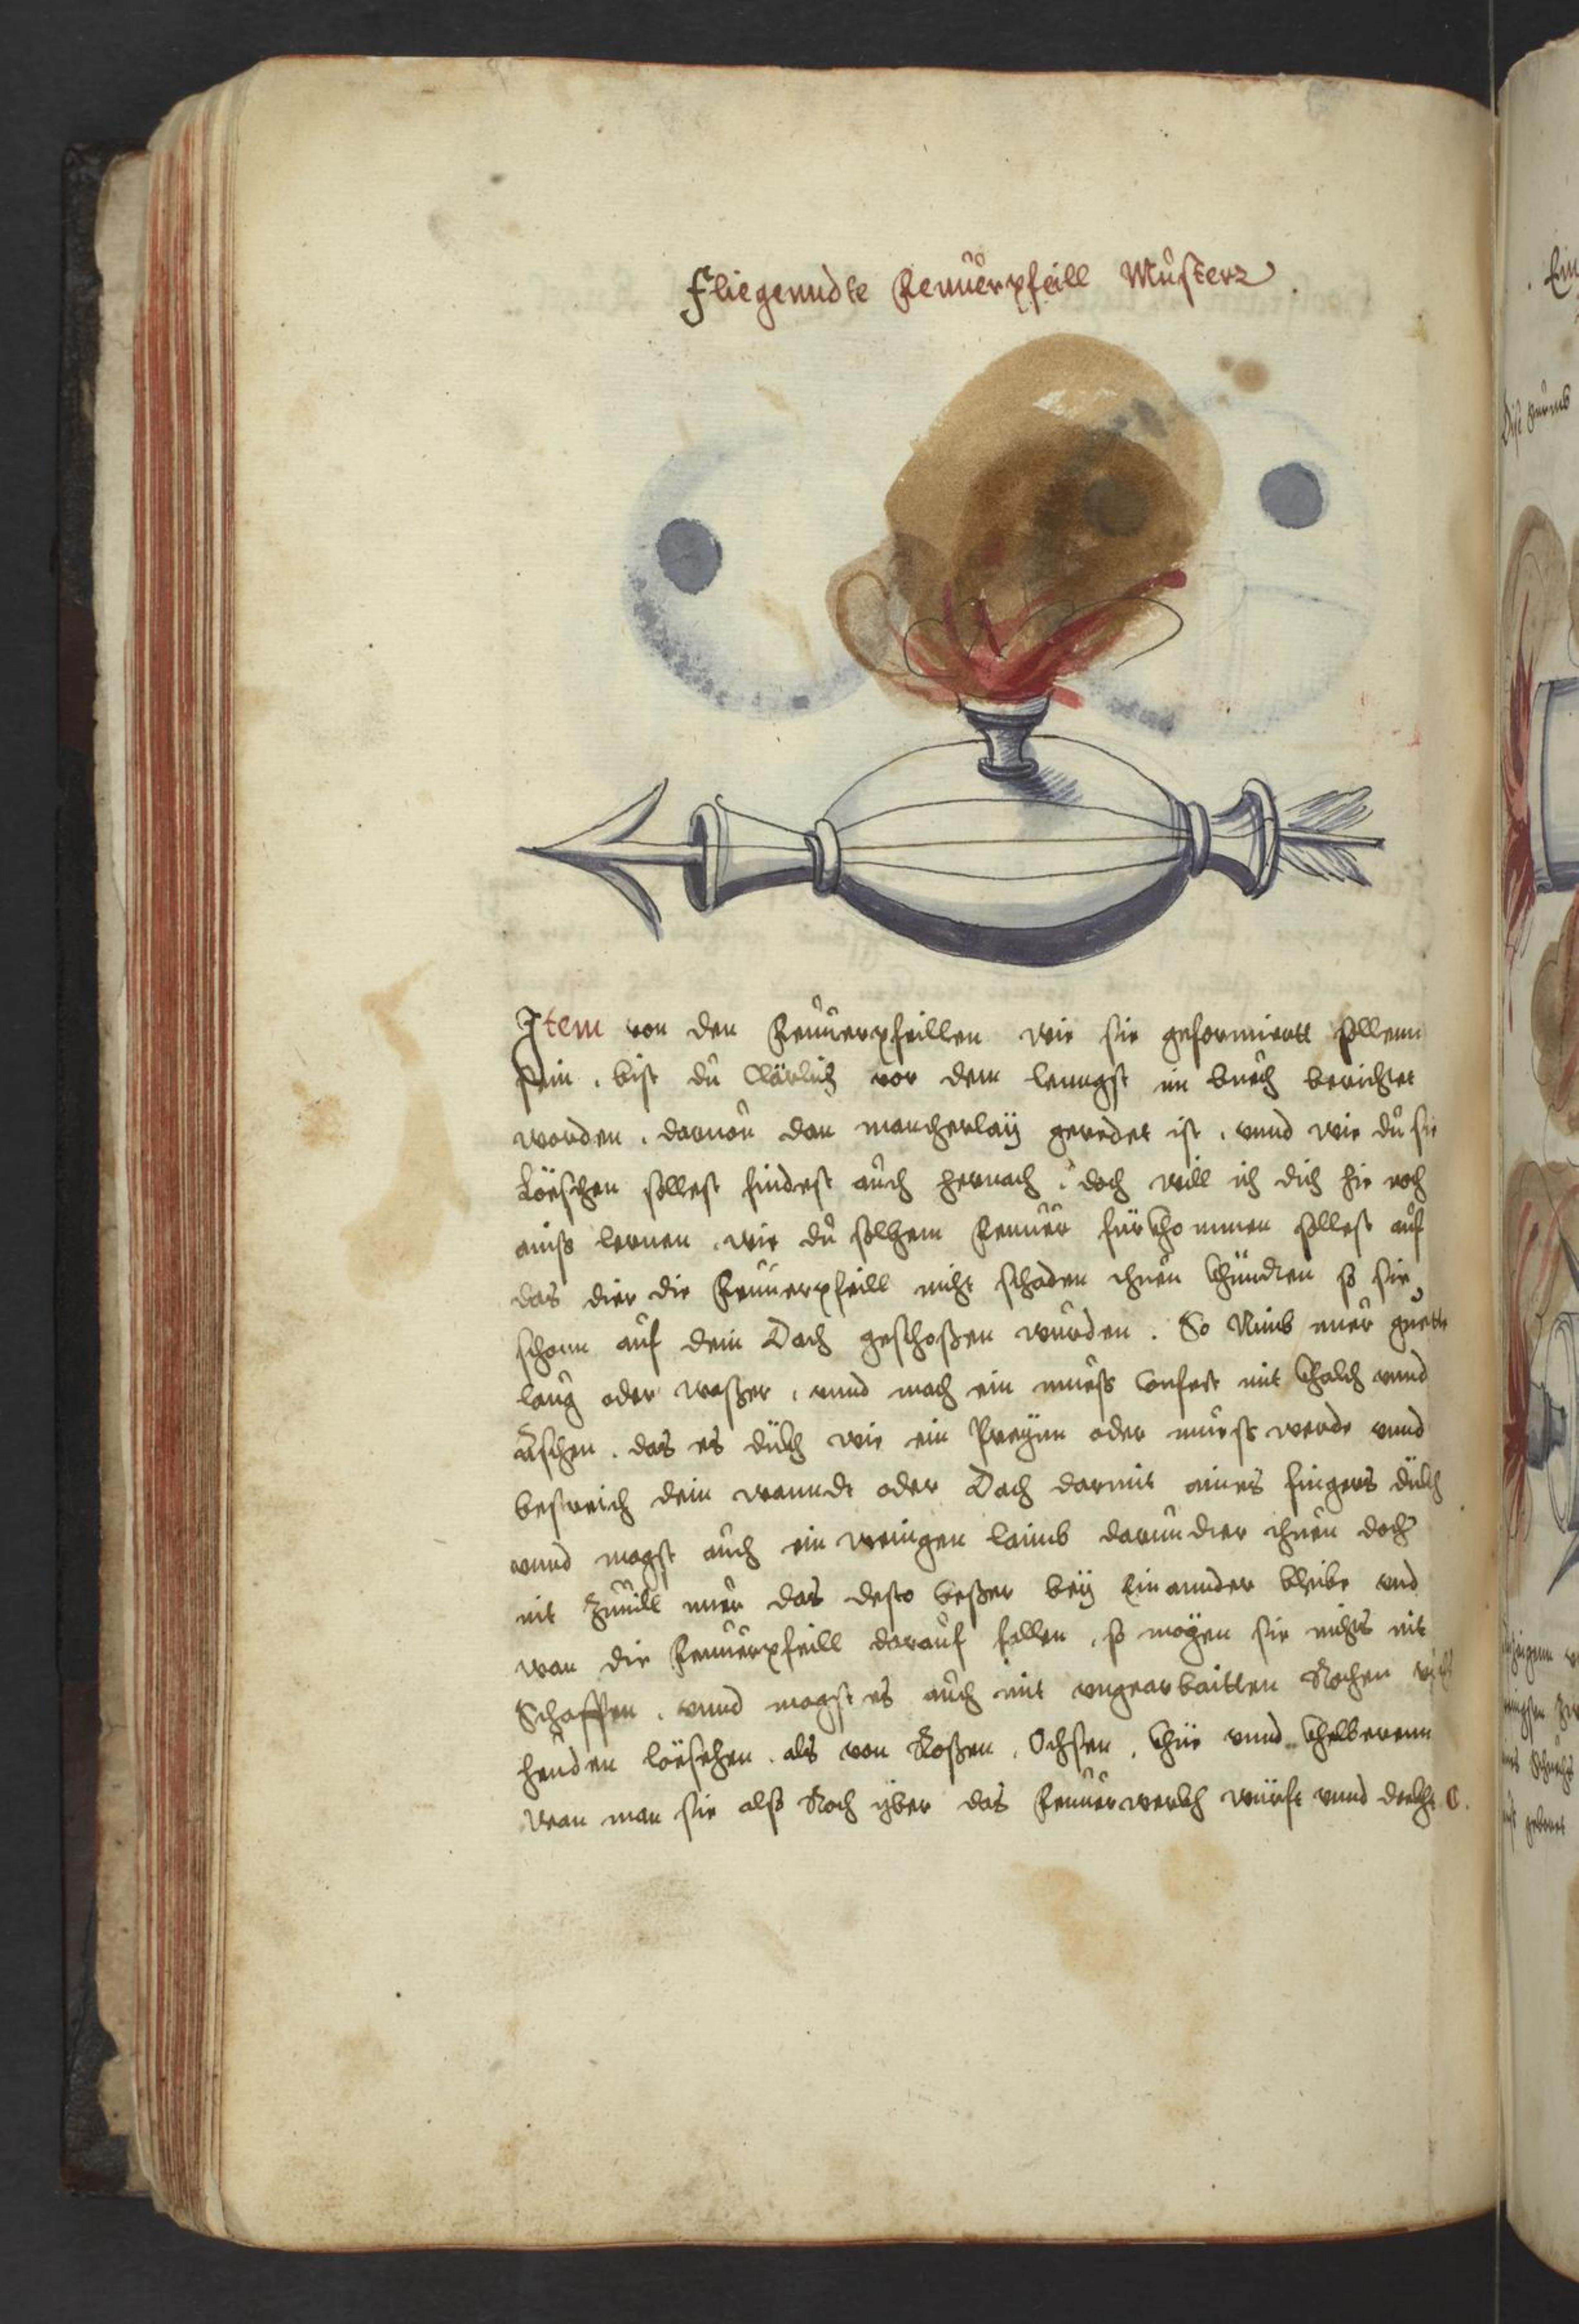 Fliegenndte Feuuerpfeill Musterz
Item von den Feuuerpfeillen wie sie geformiertt sollenn
sein . bist du Clärlich vor dem lenngst im buech berichtet
worden . darvon dan mancherlaÿ geredet ist . vnnd wie du sie
Löeschen sollest findest auch hernach . doch will ich dich hie noch
ainß lernen . wie du solhem Feuuer fürkhommen sollest auf
das dier die Feuuerpfeill nicht schaden thuen khündten so sie
schonn auf dein Dach geschoßen wurden . So Nimb nuer guette
laug oder waßer , vnnd mach ein mueß Confect mit khalch vnnd
Äschen . das es dükh wie ein Preÿen oder mueß werde vnnd
bestreich dein wanndt oder Dach darmit aines fingers dükh
vnnd magst auch ein wenigen laimb darundter thuen doch
nit Zuuill nuer das desto beßer beÿ Ein annder bleibe vnd
wan die Feuuerpfeill darauf fallen , so mögen sie nichts nit
Schaffen . vnnd magst es auch mit vngearbaitten Rochen
heuden löeschen . als von Roßen , Ochsen , khüe vnnd khelberenn
wan man sie alß Roch yber das Feuuerwerkh würft vnnd dekht